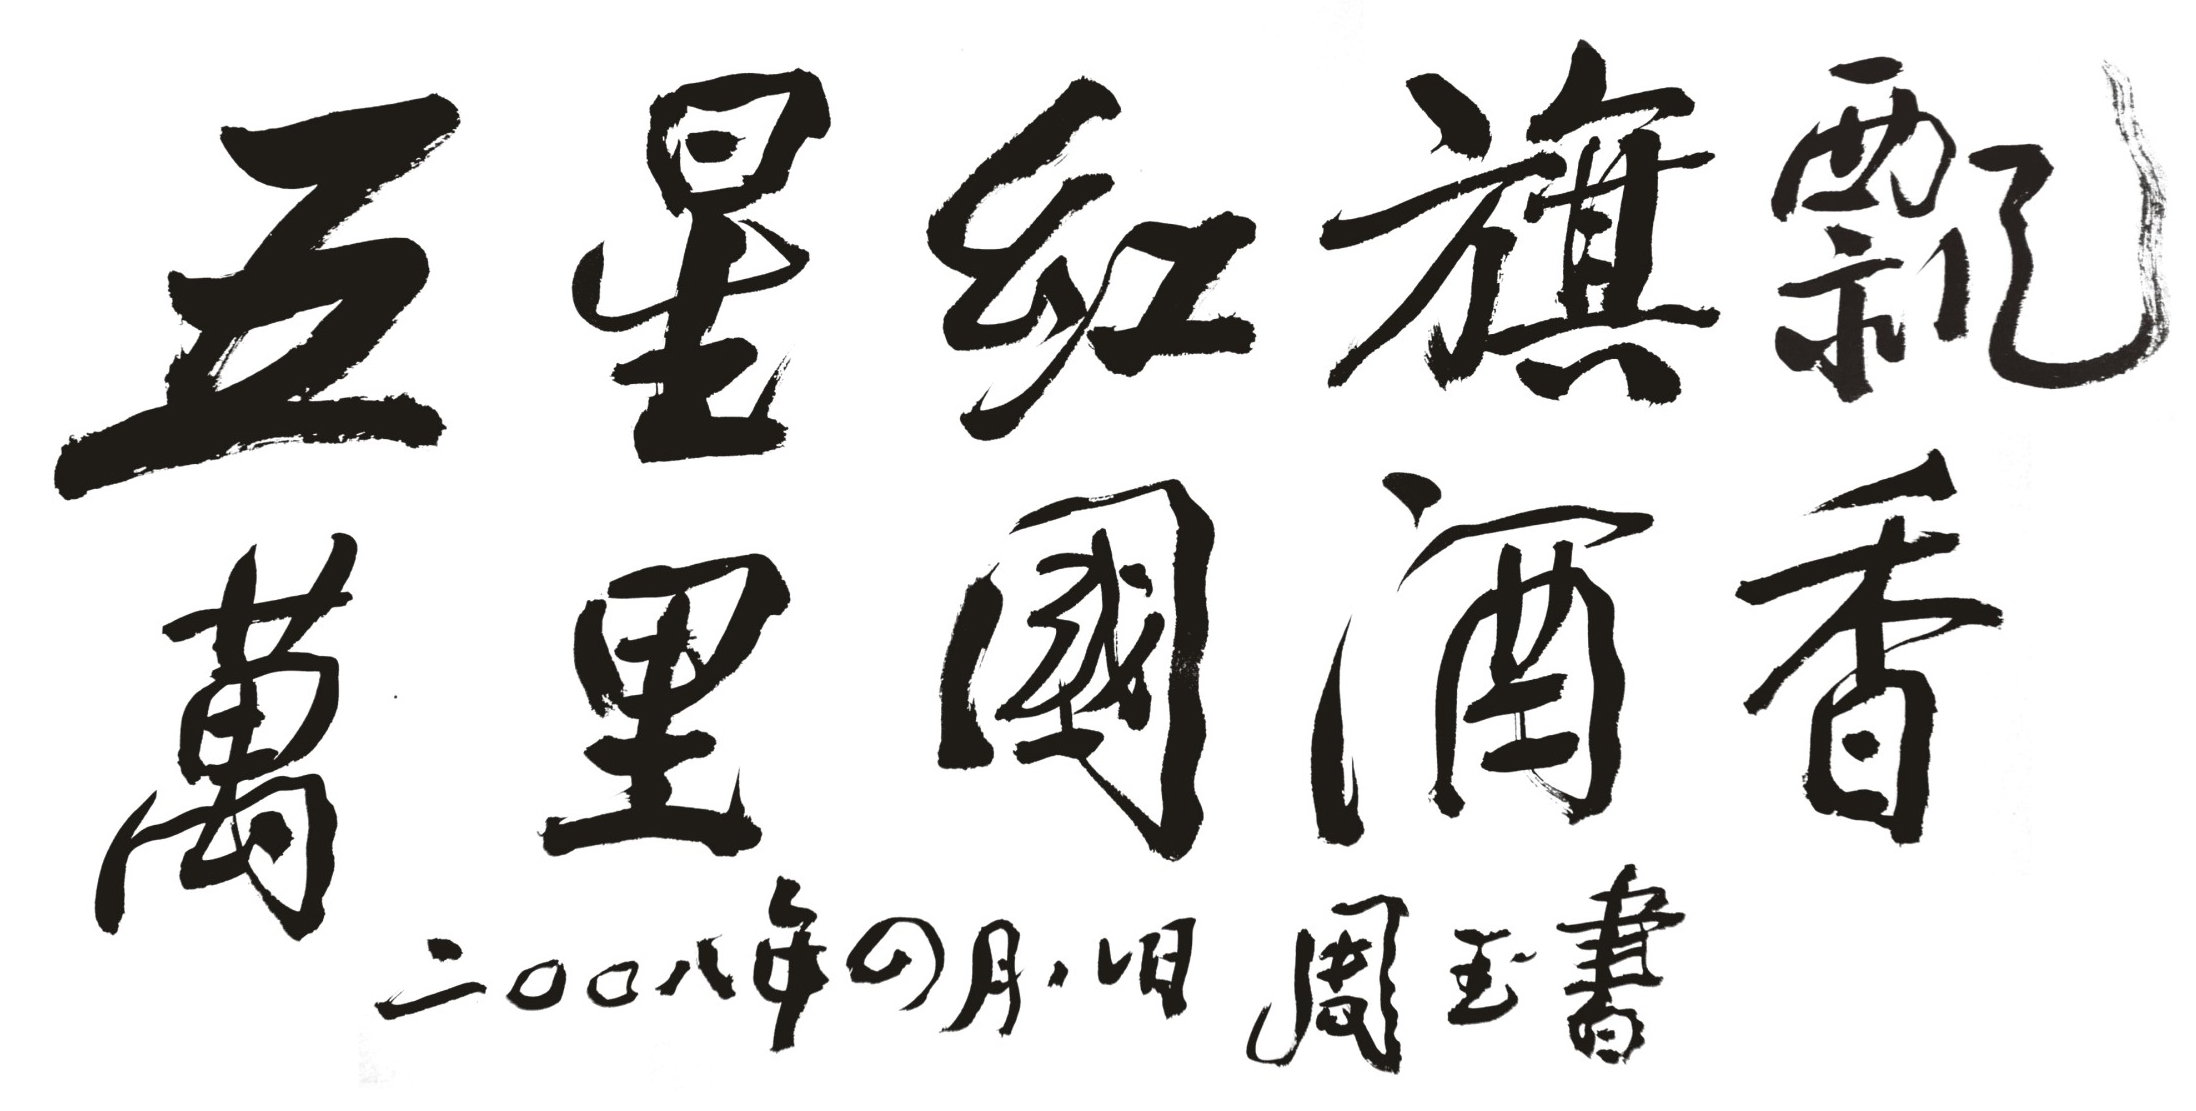 五星紅旗飄
萬里國酒香
二〇〇八年四月八日 周玉書